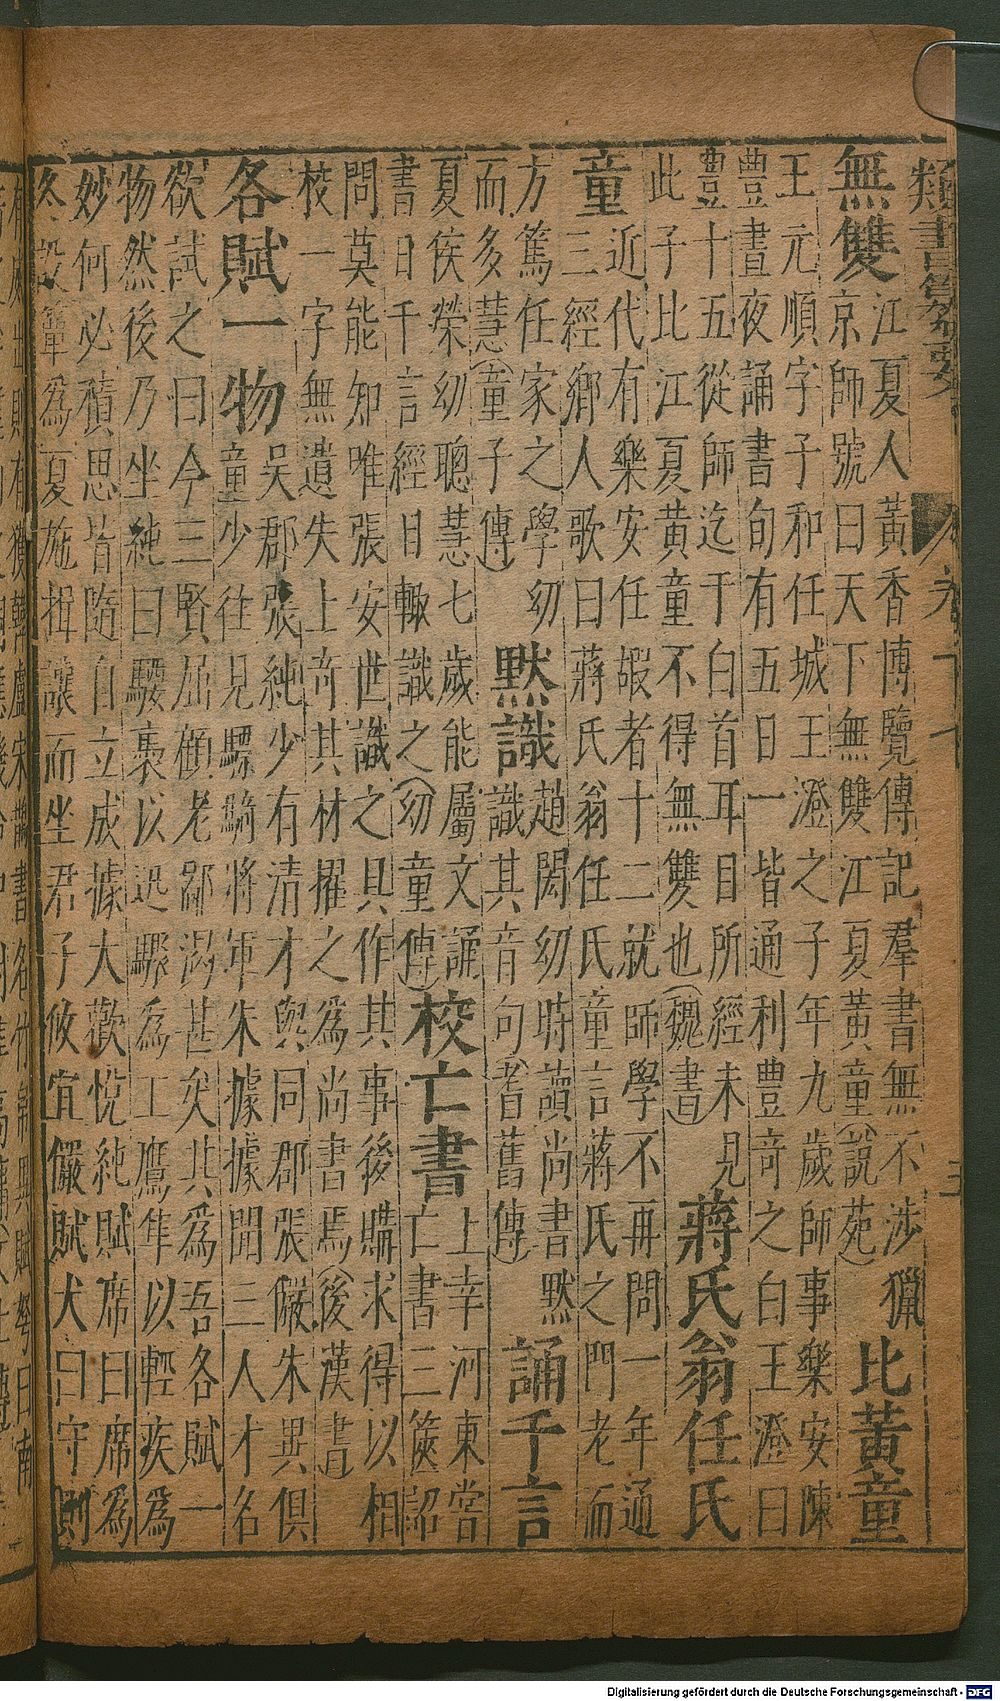 類書纂要
無雙 江夏人黃香博覽傳記羣書無不涉獵
京師號曰天下無雙江夏黃童(說苑) 比黃童
王元順字子和任城王澄之子年九歲師事樂安陳
豊晝夜誦書旬有五日一皆通利豊奇之白王澄曰
豊十五從師迄于白首耳目所經未見
此子比江夏黃童不得無雙也(魏書) 蔣氏翁任氏
童 近代有樂安任嘏者十二就師學不再問一年通
三經鄉人歌曰蔣氏翁任氏童言蔣氏之門老而
方篤任家之學幼
而多慧(童子傳) 默識 趙閎幼時讀尚書默
識其音句(耆舊傳) 誦千言
夏侯榮幼聰慧七歲能屬文誦
書日千言經目輙識之(幼童傳) 校亡書 上幸河東嘗
亡書三篋詔
問莫能知唯張安世識之具作其事後購求得以相
校一字無遺失上奇其材擢之為尚書焉(後漢書)
各賦一物 吳郡張純少有清才與同郡張儼朱異俱
童少往見驃騎將軍朱據據聞三人才名
欲試之曰今三賢屈顧老鄙渴甚矣其為吾各賦一
物然後乃坐純曰騕褭以迅驟為工鷹隼以輕疾為
妙何必積思皆隨自立成據大歡悅純賦席曰席為
冬設簟為夏施揖讓而坐君子攸宜儼賦犬曰守則
Digitalisierung gefördert durch die Deutsche Forschungsgemeinschaft - DFG